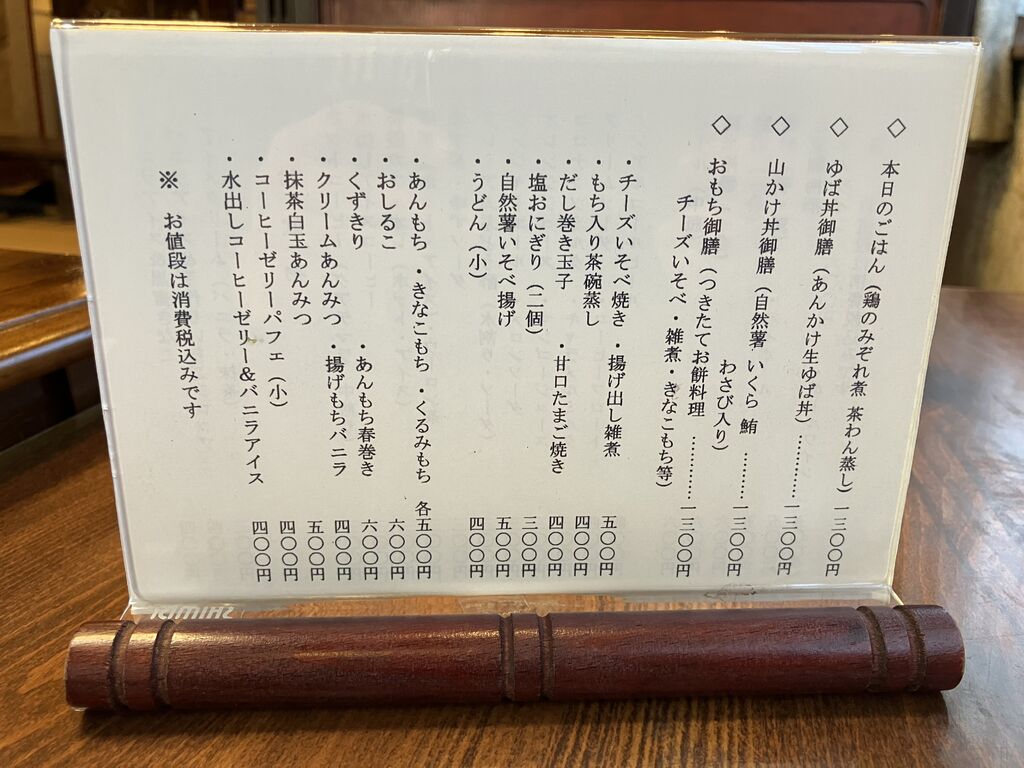 ◇ 本日のごはん（鶏のみぞれ煮 茶わん蒸し）一三〇〇円
◇ ゆば丼御膳（あんかけ生ゆば丼）…………一三〇〇円
◇ 山かけ丼御膳（自然薯 いくら 鮪
わさび入り）………一三〇〇円
◇ おもち御膳（つきたてお餅料理
チーズいそべ・雑煮・きなこもち等）…………一三〇〇円
・チーズいそべ焼き ・揚げ出し雑煮 五〇〇円
・もち入り茶碗蒸し 四〇〇円
・だし巻き玉子 ・甘口たまご焼き 四〇〇円
・塩おにぎり（二個） 三〇〇円
・自然薯いそべ揚げ 五〇〇円
・うどん（小） 四〇〇円
・あんもち ・きなこもち ・くるみもち 各五〇〇円
・おしるこ 六〇〇円
・くずきり ・あんもち春巻き 六〇〇円
・クリームあんみつ ・揚げもちバニラ 四〇〇円
・抹茶白玉あんみつ 五〇〇円
・コーヒーゼリーパフェ（小） 四〇〇円
・水出しコーヒーゼリー&バニラアイス 四〇〇円
※ お値段は消費税込みです